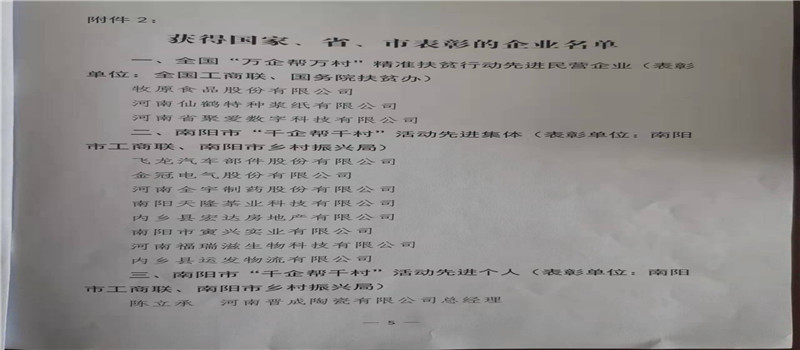 附件2：
获得国家、省、市表彰的企业名单
一、全国“万企帮万村”精准扶贫行动先进民营企业（表彰
单位：全国工商联、国务院扶贫办）
牧原食品股份有限公司
河南仙鹤特种浆纸有限公司
河南省聚爱数字科技有限公司
二、南阳市“千企帮千村”活动先进集体（表彰单位：南阳
市工商联、南阳市乡村振兴局）
飞龙汽车部件股份有限公司
金冠电气股份有限公司
河南全宇制药股份有限公司
南阳天隆茶业科技有限公司
内乡县宏达房地产有限公司
南阳市寅兴实业有限公司
河南福瑞滋生物科技有限公司
内乡县运发物流有限公司
三、南阳市“千企帮千村”活动先进个人（表彰单位：南阳
市工商联、南阳市乡村振兴局）
陈立承 河南晋成陶瓷有限公司总经理
— 5 —